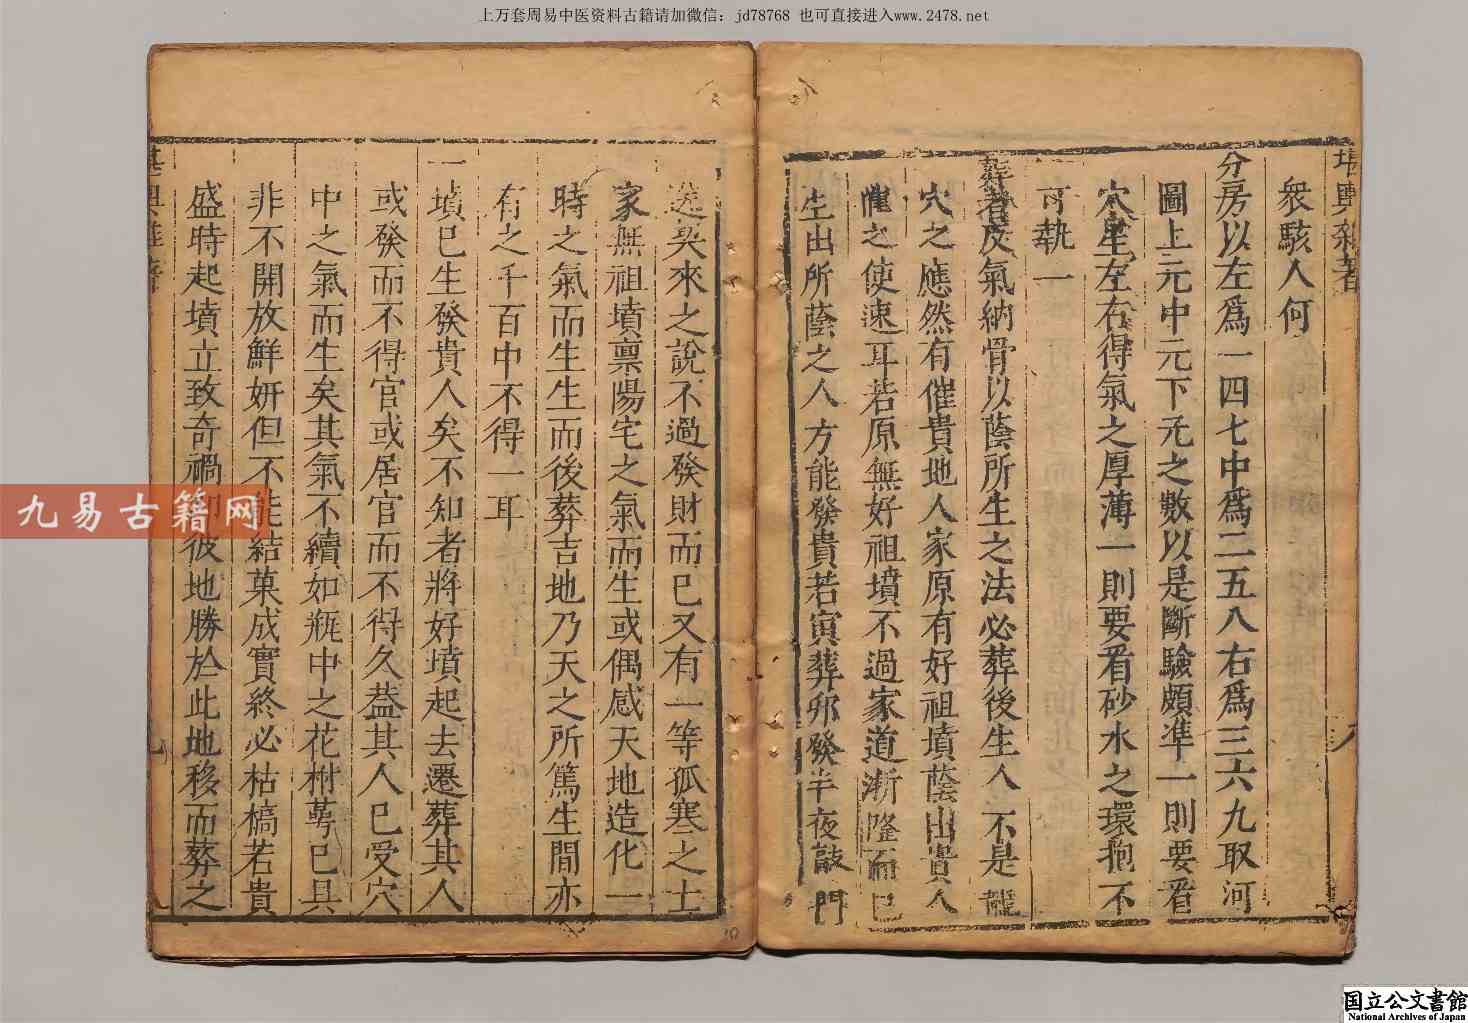 上万套周易中医资料古籍请加微信：jd78768 也可直接进入www.2478.net
堪輿雜著
八
衆駭人何
分房以左爲一四七中爲二五八右爲三六九取河
圖上元中元下元之數以是斷驗頗準一則要看
穴星左右得氣之厚薄一則要看砂水之環抱不
可執一
葬者反氣納骨以蔭所生之法必葬後生人不是龍
穴之應然有催貴地人家原有好祖墳蔭出貴人
催之使速耳若原無好祖墳不過家道漸隆而已
生出所蔭之人方能發貴若寅葬卯發半夜敲門
送契來之說不過發財而已又有一等孤寒之士
家無祖墳禀陽宅之氣而生或偶感天地造化一
時之氣而生生而後葬吉地乃天之所篤生間亦
有之千百中不得一耳
一墳已生發貴人矣不知者將好墳起去遷葬其人
或發而不得官或居官而不得久葢其人已受穴
中之氣而生矣其氣不續如瓶中之花柎萼已具
非不開放鮮妍但不能結菓成實終必枯槁若貴
盛時起墳立致奇禍卽彼地勝於此地移而葬之
九易古籍网
国立公文書館
National Archives of Japan